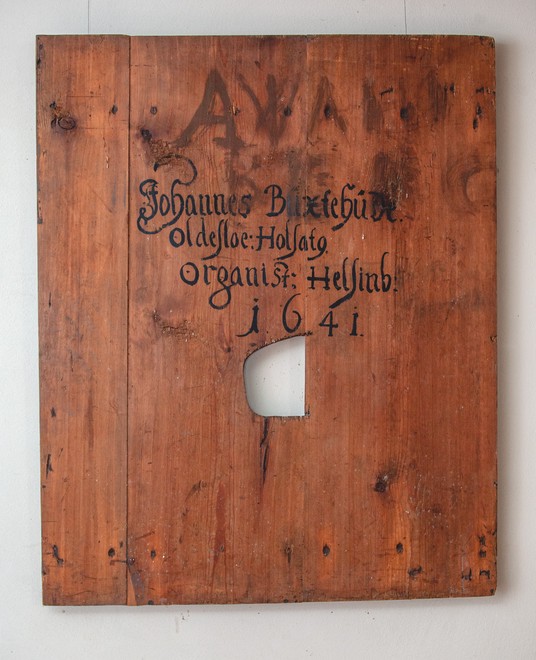 Johannes Buxtehude.
Oldesloe: Holsatq
Organist: Helsinb:
1641.